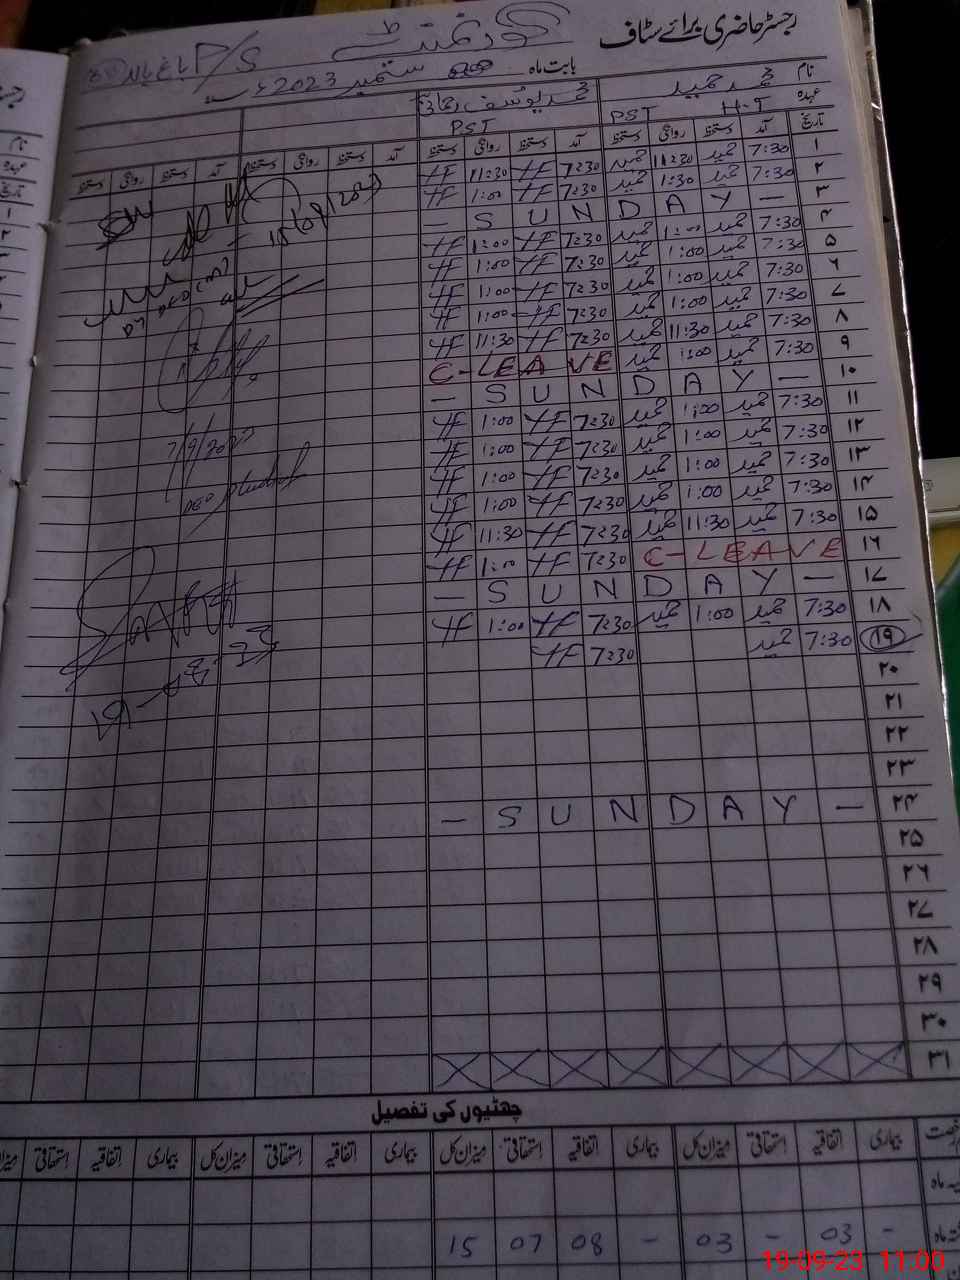 رجسٹر حاضری برائے سٹاف گورنمنٹ P/S باغ بالا
بابت ماہ ستمبر 2023ء
نام محمد حمید محمد یوسف
عہدہ PST H-T PST
تاریخ آمد دستخط روانگی دستخط آمد دستخط روانگی دستخط آمد دستخط روانگی دستخط آمد دستخط روانگی دستخط
۱ 7:30 حمید 11:30 حمید 7:30 YF 11:30 YF
۲ 7:30 حمید 1:30 حمید 7:30 YF 1:00 YF
۳ — S U N D A Y —
۴ 7:30 حمید 1:00 حمید 7:30 YF 1:00 YF
۵ 7:30 حمید 1:00 حمید 7:30 YF 1:00 YF
۶ 7:30 حمید 1:00 حمید 7:30 YF 1:00 YF
۷ 7:30 حمید 1:00 حمید 7:30 YF 1:00 YF
۸ 7:30 حمید 11:30 حمید 7:30 YF 11:30 YF
۹ 7:30 حمید 1:00 حمید C-LEAVE
۱۰ — S U N D A Y —
۱۱ 7:30 حمید 1:00 حمید 7:30 YF 1:00 YF
۱۲ 7:30 حمید 1:00 حمید 7:30 YF 1:00 YF
۱۳ 7:30 حمید 1:00 حمید 7:30 YF 1:00 YF
۱۴ 7:30 حمید 1:00 حمید 7:30 YF 1:00 YF
۱۵ 7:30 حمید 11:30 حمید 7:30 YF 11:30 YF
۱۶ C-LEAVE 7:30 YF 1:00 YF
۱۷ — S U N D A Y —
۱۸ 7:30 حمید 1:00 حمید 7:30 YF 1:00 YF
۱۹ 7:30 حمید 7:30 YF
۲۰
۲۱
۲۲
۲۳
۲۴ — S U N D A Y —
۲۵
۲۶
۲۷
۲۸
۲۹
۳۰
۳۱
15/09/2023
7/9/2023
چھٹیوں کی تفصیل
بیماری اتفاقیہ استحقاقی میزان کل بیماری اتفاقیہ استحقاقی میزان کل بیماری اتفاقیہ استحقاقی میزان کل بیماری اتفاقیہ استحقاقی میزان
- 03 - 03 - 08 07 15
19-09-23 11:00